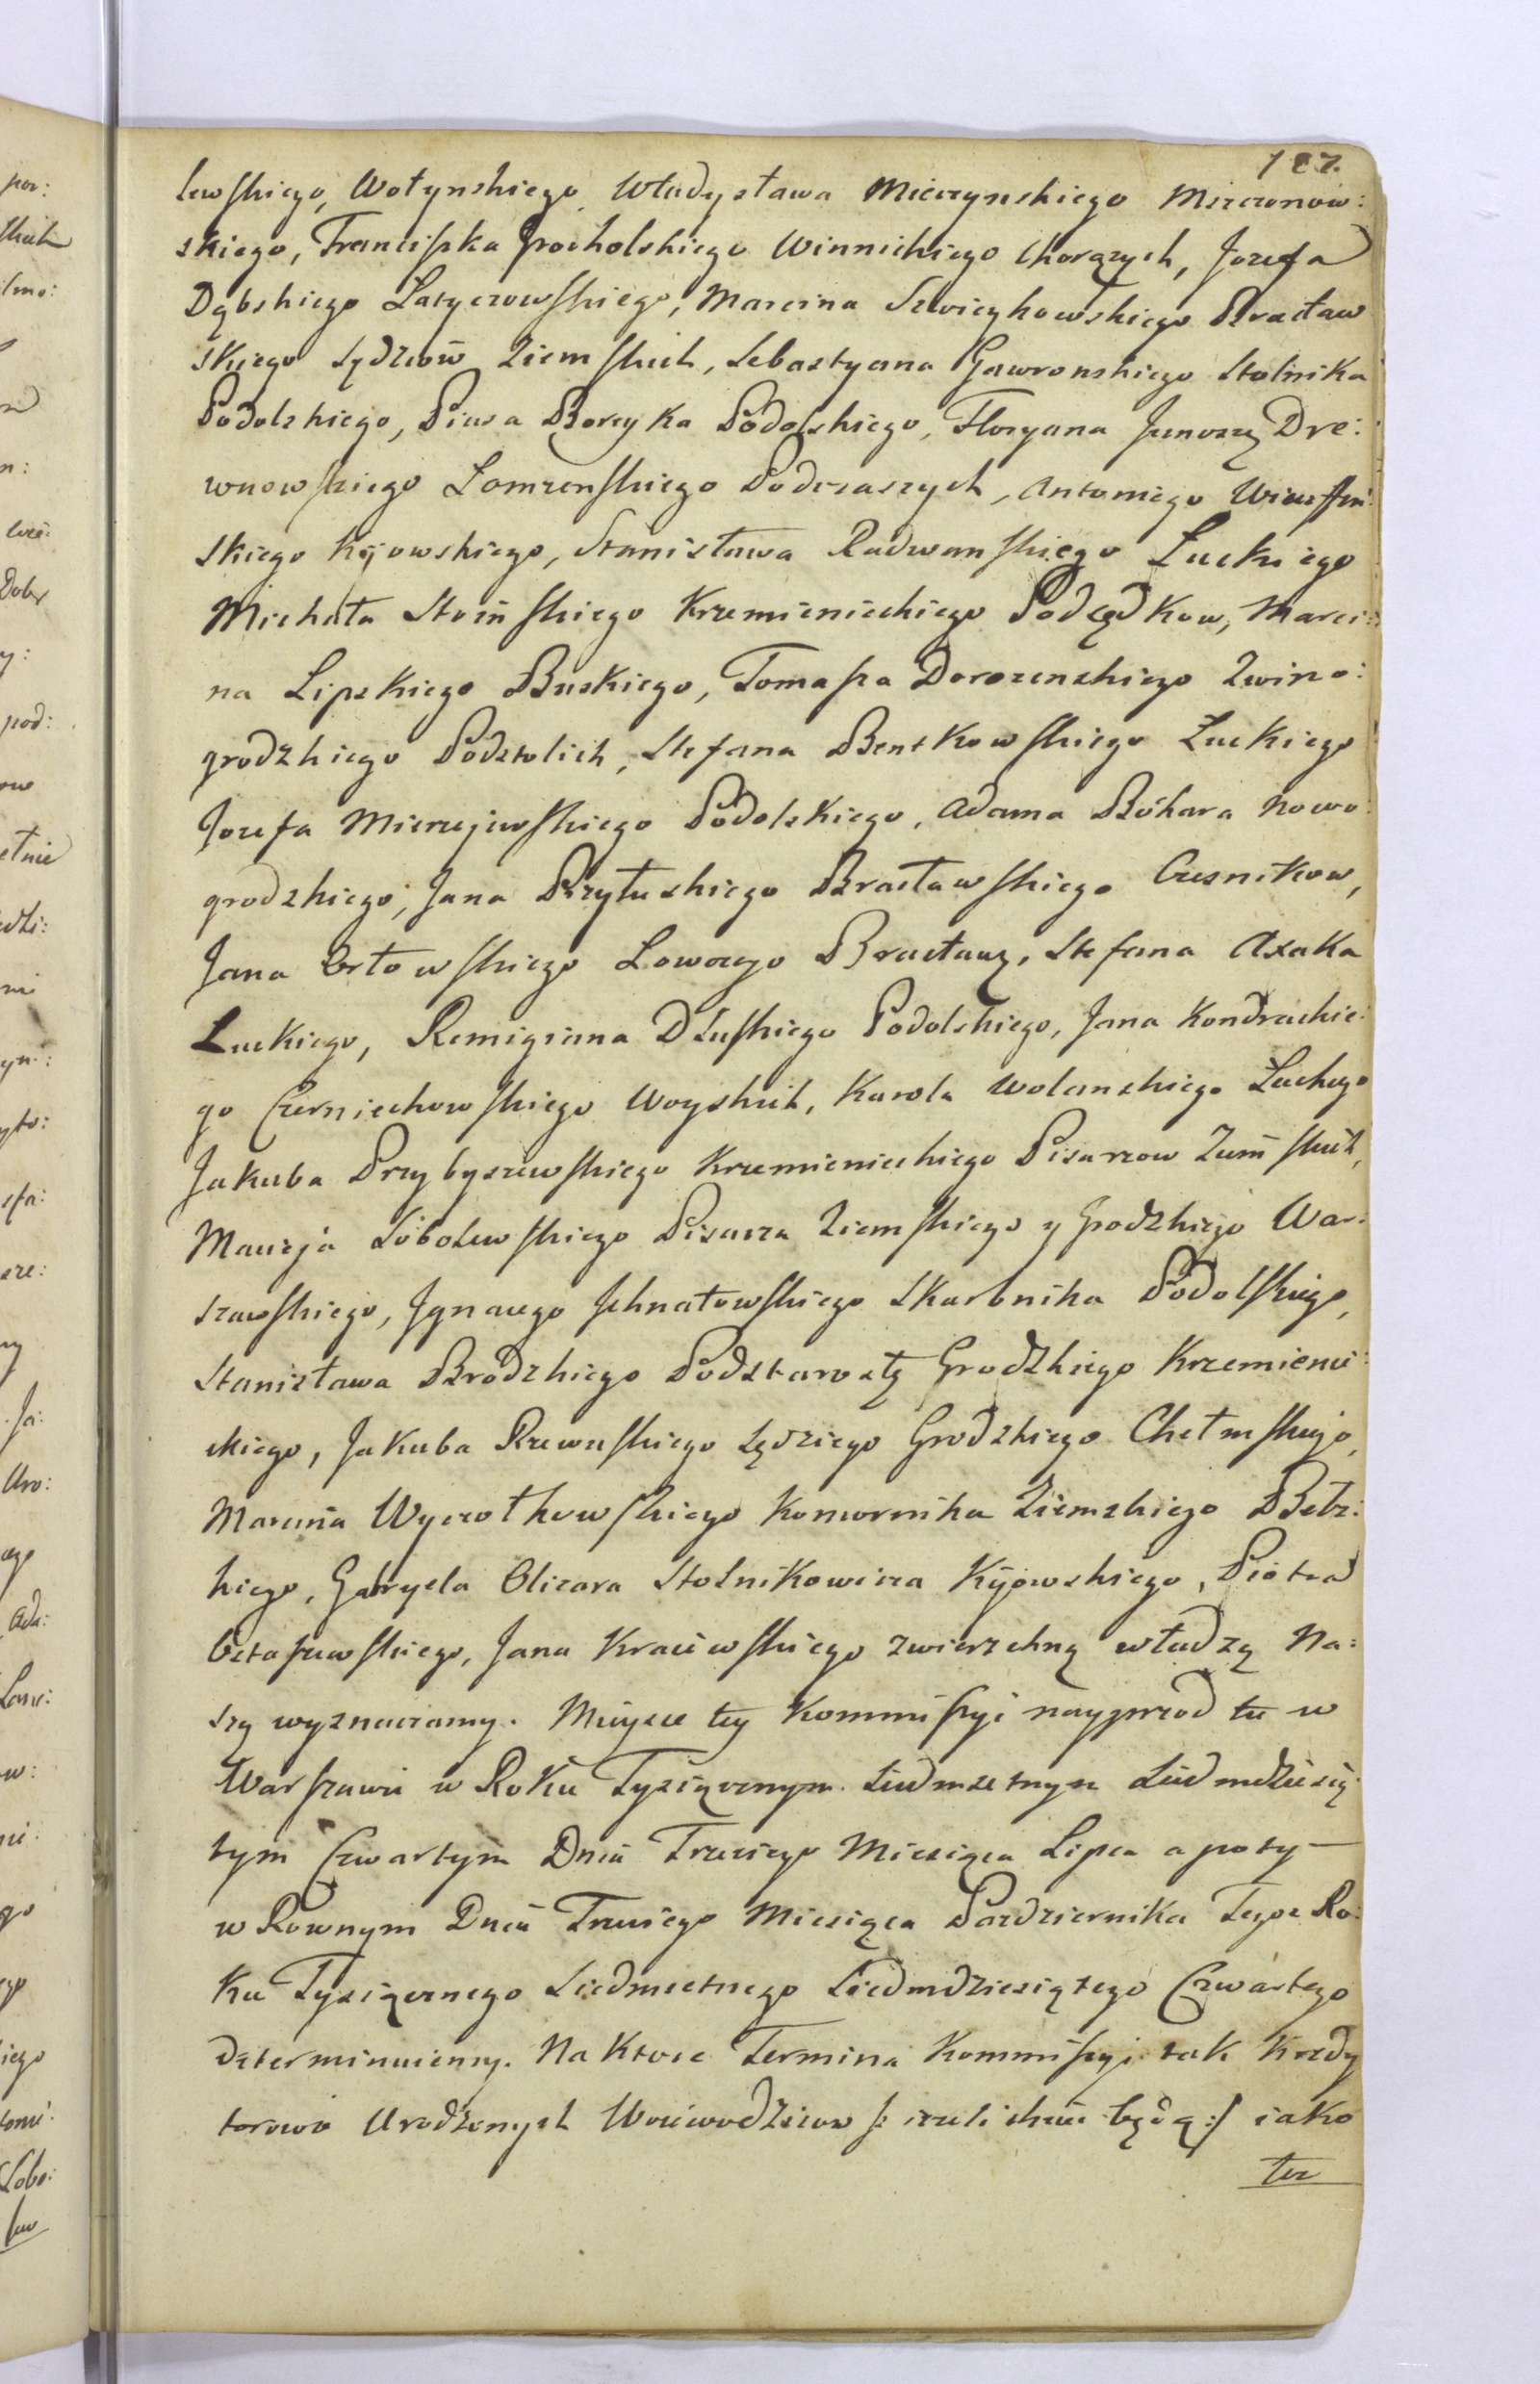 187.
lewskiego, Wołynskiego Władysława Mierzynskiego Mszczonow:
skiego, Franciszka Grocholskiego Winnickiego Chorązych, Jozefa
Dąbskiego Latyczowskiego, Marcina Szwieykowskiego Bracław
skiego Sędziow Ziemskich, Sebastyana Gawronskiego Stolnika
Podolskiego, Piusa Boreyka Podolskiego, Floryana Junoszy Dre:
wnowskiego Łomzenskiego Podczaszych, Antoniego
skiego Kijowskiego, Stanisława Radwanskiego Łuckiego
Michała Stoinskiego Krzemienieckiego Podsędkow, Marci:
na Lipskiego Buskiego, Tomasza Dorozenskiego Zwino:
grodzkiego Podstolich, Stefana Bentkowskiego Łuckiego
Jozefa Mierzejewskiego Podolskiego, Adama Bóhara Nowo
grodzkiego, Jana Przyłuskiego Bracławskiego Czesnikow,
Jana Orłowskiego Łowczego Bracławs, Stefana Axaka
Łuckiego, Remigiana Dłuskiego Podolskiego, Jana Kondrackie:
go Czerniechowskiego Woyskich, Karola Wolanskiego Łuckiego
Jakuba Przybyszewskiego Krzemienieckiego Pisarzow Ziemskich,
Macieja Sobolewskiego Pisarza Ziemskiego y Grodzkiego War:
szawskiego, Jgnacego Jchnatowskiego Skarbnika Podolskiego,
Stanisława Brodzkiego Podstarostę Grodzkiego Krzemienie:
ckiego, Jakuba Rzewuskiego Sędziego Grodzkiego Chełmskiego,
Marcina Wyczołkowskiego Komornika Ziemskiego Bełz:
kiego, Gabryela Olizara Stolnikowicza Kijowskiego, Piotra
Ostaszewskiego, Jana Kraiewskiego zwierzchną władzą Na:
szą wyznaczamy. Mieysce tey Kommissyi nayprzod tu w
Warszawie w Roku Tysiącznym Siedmsetnym Siedmdziesią:
tym Czwartym Dnia Trzeciego Miesiąca Lipca a poty
w Rownym Dnia Trzeciego Miesiąca Pazdziernika Tegoz Ro:
ku Tysiącznego Siedmsetnego Siedmdziesiątego Czwartego
determinuiemy. Na ktore Termina Kommissyi tak Kredy
torowie Urodzonych Woiewodzicow /: iezeli iakie będą :/ iako
tez